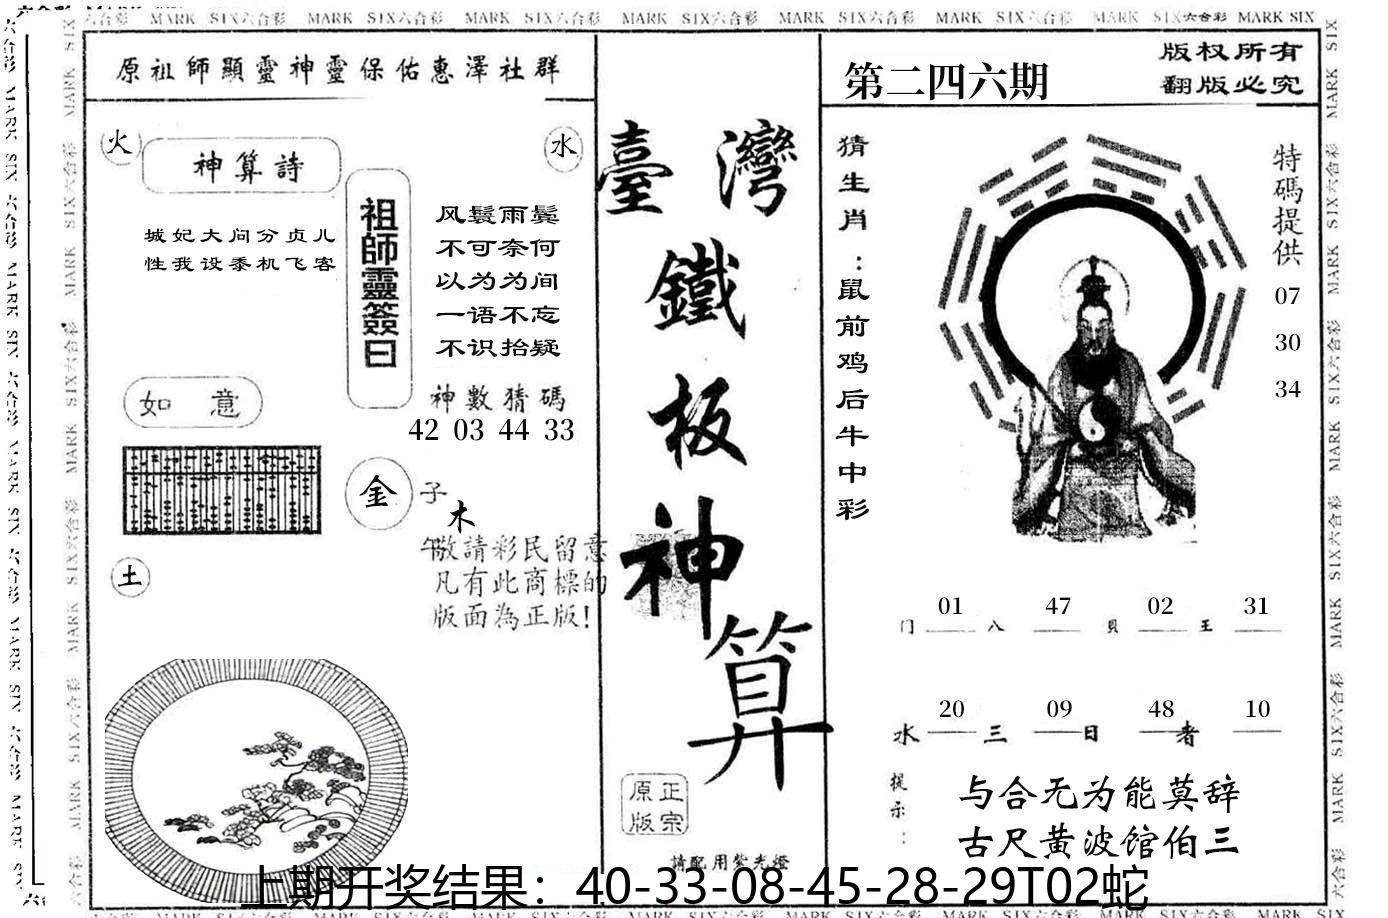 MARK SIX六合彩 MARK SIX六合彩 MARK SIX六合彩 MARK SIX六合彩 MARK SIX六合彩 MARK SIX六合彩 MARK SIX六合彩 MARK SIX
原祖師顯靈神靈保佑惠澤社群
火
水
神算詩
城妃大问分贞儿
性我设黍机飞客
祖師靈簽曰
风鬟雨鬓
不可奈何
以为为间
一语不忘
不识抬疑
神數猜碼
42 03 44 33
如意
金
子
木
午
敬請彩民留意
凡有此商標的
版面為正版!
土
臺灣
鐵
板
神
算
正宗
原版
請配用紫光燈
第二四六期
版权所有
翻版必究
猜生肖:鼠前鸡后牛中彩
特碼提供
07
30
34
01 47 02 31
门 八 貝 王
20 09 48 10
水 三 日 者
提示:
与合无为能莫辞
古尺黄波馆伯三
上期开奖结果：40-33-08-45-28-29T02蛇